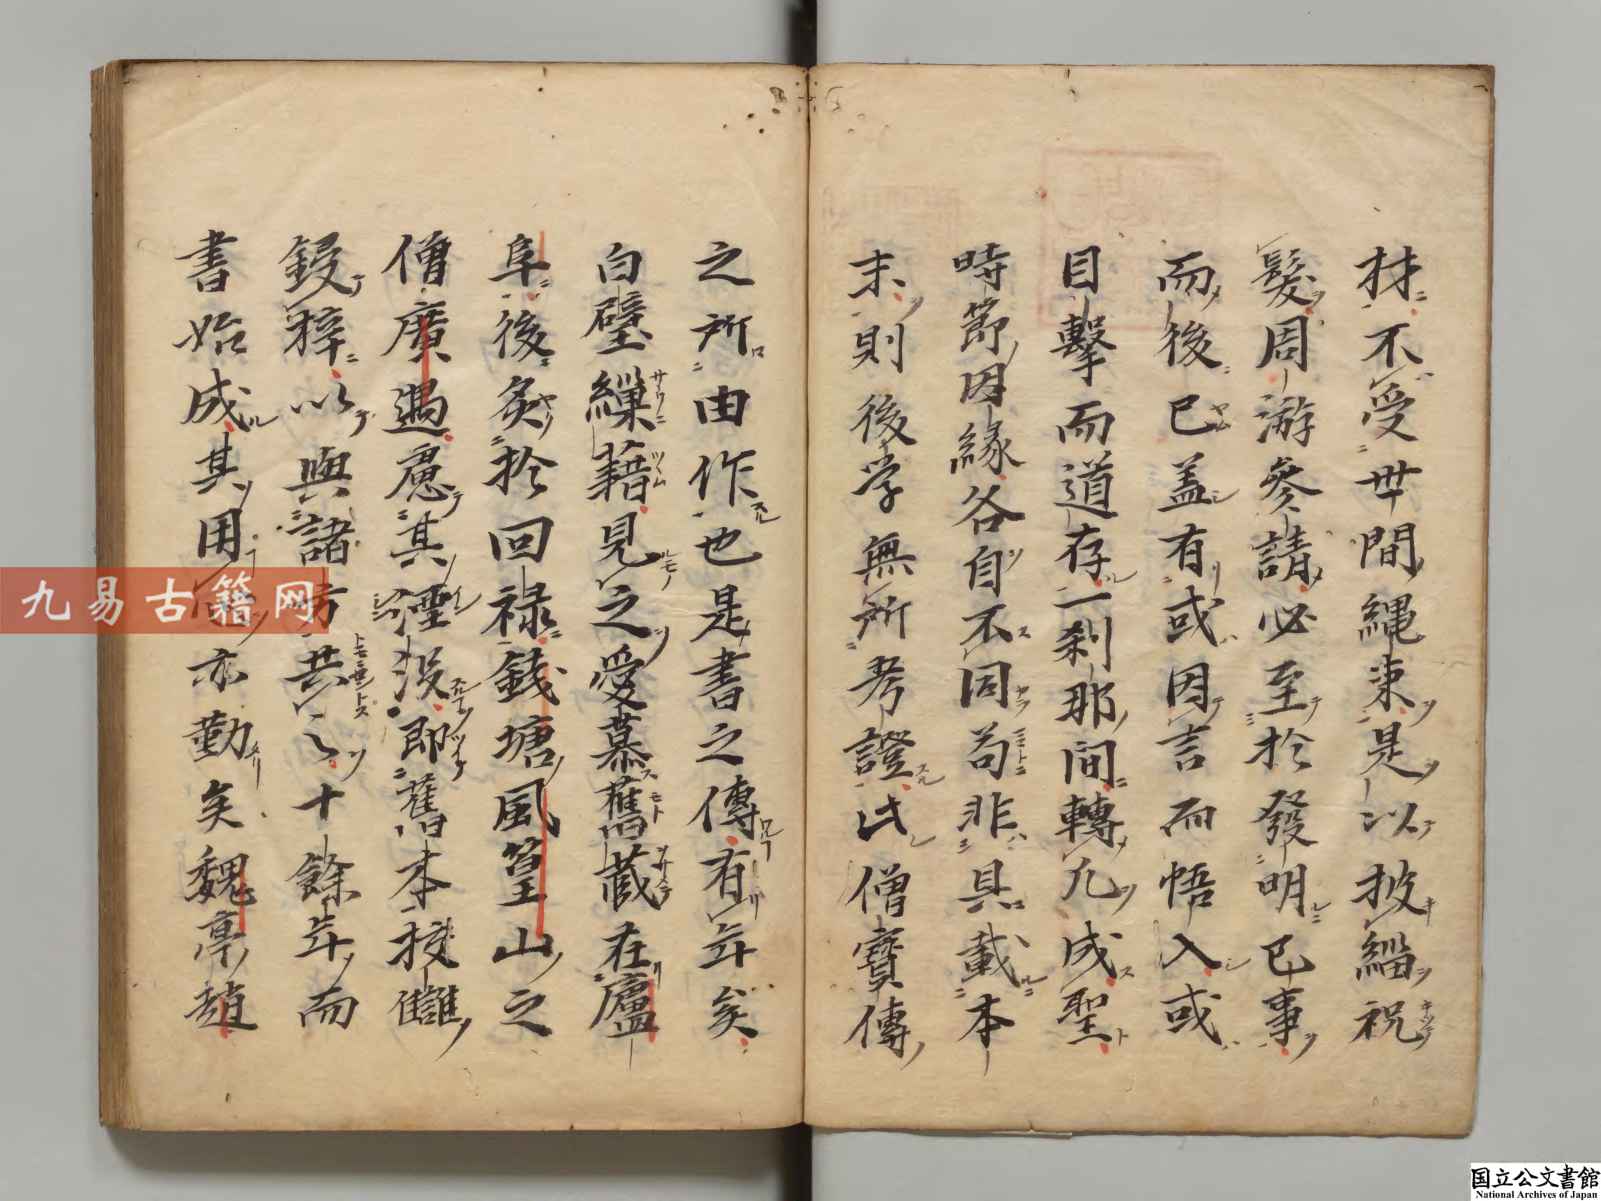 材不受世間繩束是以披緇祝
髮周游參請必至於發明已事
而後已盖有或因言而悟入或
目擊而道存一刹那間轉凡成聖
時節因緣各自不同苟非具載本
末則後学無所考證此僧寶傳
之所由作也是書之傳有年矣
白璧繅藉見之愛慕舊蔵在廬
阜後炙於回禄錢塘風篁山之
僧廣遇慮其湮没即舊本校讎
鋟梓以與諸方共之十餘年而
書始成其用亦勤矣魏亭趙
九易古籍网
国立公文書館
National Archives of Japan